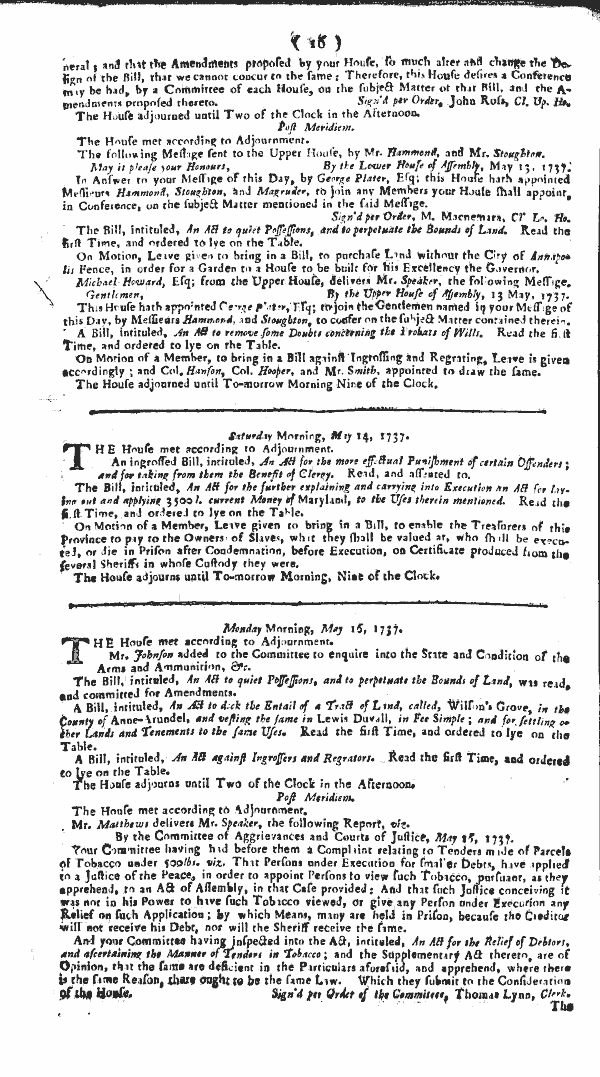 ( 16 )
neral ; and that the Amendments proposed by your House, so much alter and change the De-
sign of the Bill, that we cannot concur to the same ; Therefore, this House desires a Conference
may be had, by a Committee of each House, on the subject Matter of that Bill, and the A-
mendments proposed thereto. Sign'd per Order, John Ross, Cl. Up. Ho.
The House adjourned until Two of the Clock in the Afternoon.
Post Meridiem.
The House met according to Adjournment.
The following Message sent to the Upper House, by Mr. Hammond, and Mr. Stoughton.
May it please your Honours, By the Lower House of Assembly, May 13, 1737.
In Answer to your Message of this Day, by George Plater, Esq; this House hath appointed
Messieurs Hammond, Stoughton, and Magruder, to join any Members your House shall appoint,
in Conference, on the subject Matter mentioned in the said Message.
Sign'd per Order, M. Macnemara, Cl Lo. Ho.
The Bill, intituled, An Act to quiet Possessions, and to perpetuate the Bounds of Land. Read the
first Time, and ordered to lye on the Table.
On Motion, Leave given to bring in a Bill, to purchase Land without the City of Annapo-
lis Fence, in order for a Garden to a House to be built for his Excellency the Governor.
Michael Howard, Esq; from the Upper House, delivers Mr. Speaker, the following Message.
Gentlemen, By the Upper House of Assembly, 13 May, 1737.
This House hath appointed George Plater, Esq; to join the Gentlemen named in your Message of
this Day, by Messieurs Hammond, and Stoughton, to confer on the subject Matter contained therein.
A Bill, intituled, An Act to remove some Doubts concerning the Probats of Wills. Read the first
Time, and ordered to lye on the Table.
On Motion of a Member, to bring in a Bill against Ingrossing and Regrating, Leave is given
accordingly ; and Col. Hanson, Col. Hooper, and Mr. Smith, appointed to draw the same.
The House adjourned until To-morrow Morning Nine of the Clock.
Saturday Morning, May 14, 1737.
THE House met according to Adjournment.
An ingrossed Bill, intituled, An Act for the more effectual Punishment of certain Offenders ;
and for taking from them the Benefit of Clergy. Read, and assented to.
The Bill, intituled, An Act for the further explaining and carrying into Execution an Act for lay-
ing out and applying 3500 l. current Money of Maryland, to the Uses therein mentioned. Read the
first Time, and ordered to lye on the Table.
On Motion of a Member, Leave given to bring in a Bill, to enable the Treasurers of this
Province to pay to the Owners of Slaves, what they shall be valued at, who shall be execu-
ted, or die in Prison after Condemnation, before Execution, on Certificate produced from the
several Sheriffs in whose Custody they were.
The House adjourns until To-morrow Morning, Nine of the Clock.
Monday Morning, May 16, 1737.
THE House met according to Adjournment.
Mr. Johnson added to the Committee to enquire into the State and Condition of the
Arms and Ammunition, &c.
The Bill, intituled, An Act to quiet Possessions, and to perpetuate the Bounds of Land, was read,
and committed for Amendments.
A Bill, intituled, An Act to dock the Entail of a Tract of Land, called, Wilson's Grove, in the
County of Anne-Arundel, and vesting the same in Lewis Duvall, in Fee Simple ; and for settling o-
ther Lands and Tenements to the same Uses. Read the first Time, and ordered to lye on the
Table.
A Bill, intituled, An Act against Ingrossers and Regrators. Read the first Time, and ordered
to lye on the Table.
The House adjourns until Two of the Clock in the Afternoon.
Post Meridiem.
The House met according to Adjournment.
Mr. Matthews delivers Mr. Speaker, the following Report, viz.
By the Committee of Aggrievances and Courts of Justice, May 16, 1737.
Your Committee having had before them a Complaint relating to Tenders made of Parcels
of Tobacco under 500lbs. viz. That Persons under Execution for smaller Debts, have applied
to a Justice of the Peace, in order to appoint Persons to view such Tobacco, pursuant, as they
apprehend, to an Act of Assembly, in that Case provided : And that such Justice conceiving it
was not in his Power to have such Tobacco viewed, or give any Person under Execution any
Relief on such Application ; by which Means, many are held in Prison, because the Creditor
will not receive his Debt, nor will the Sheriff receive the same.
And your Committee having inspected into the Act, intituled, An Act for the Relief of Debtors,
and ascertaining the Manner of Tenders in Tobacco ; and the Supplementary Act thereto, are of
Opinion, that the same are deficient in the Particulars aforesaid, and apprehend, where there
is the same Reason, there ought to be the same Law. Which they submit to the Consideration
of the House. Sign'd per Order of the Committee, Thomas Lynn, Clerk.
The